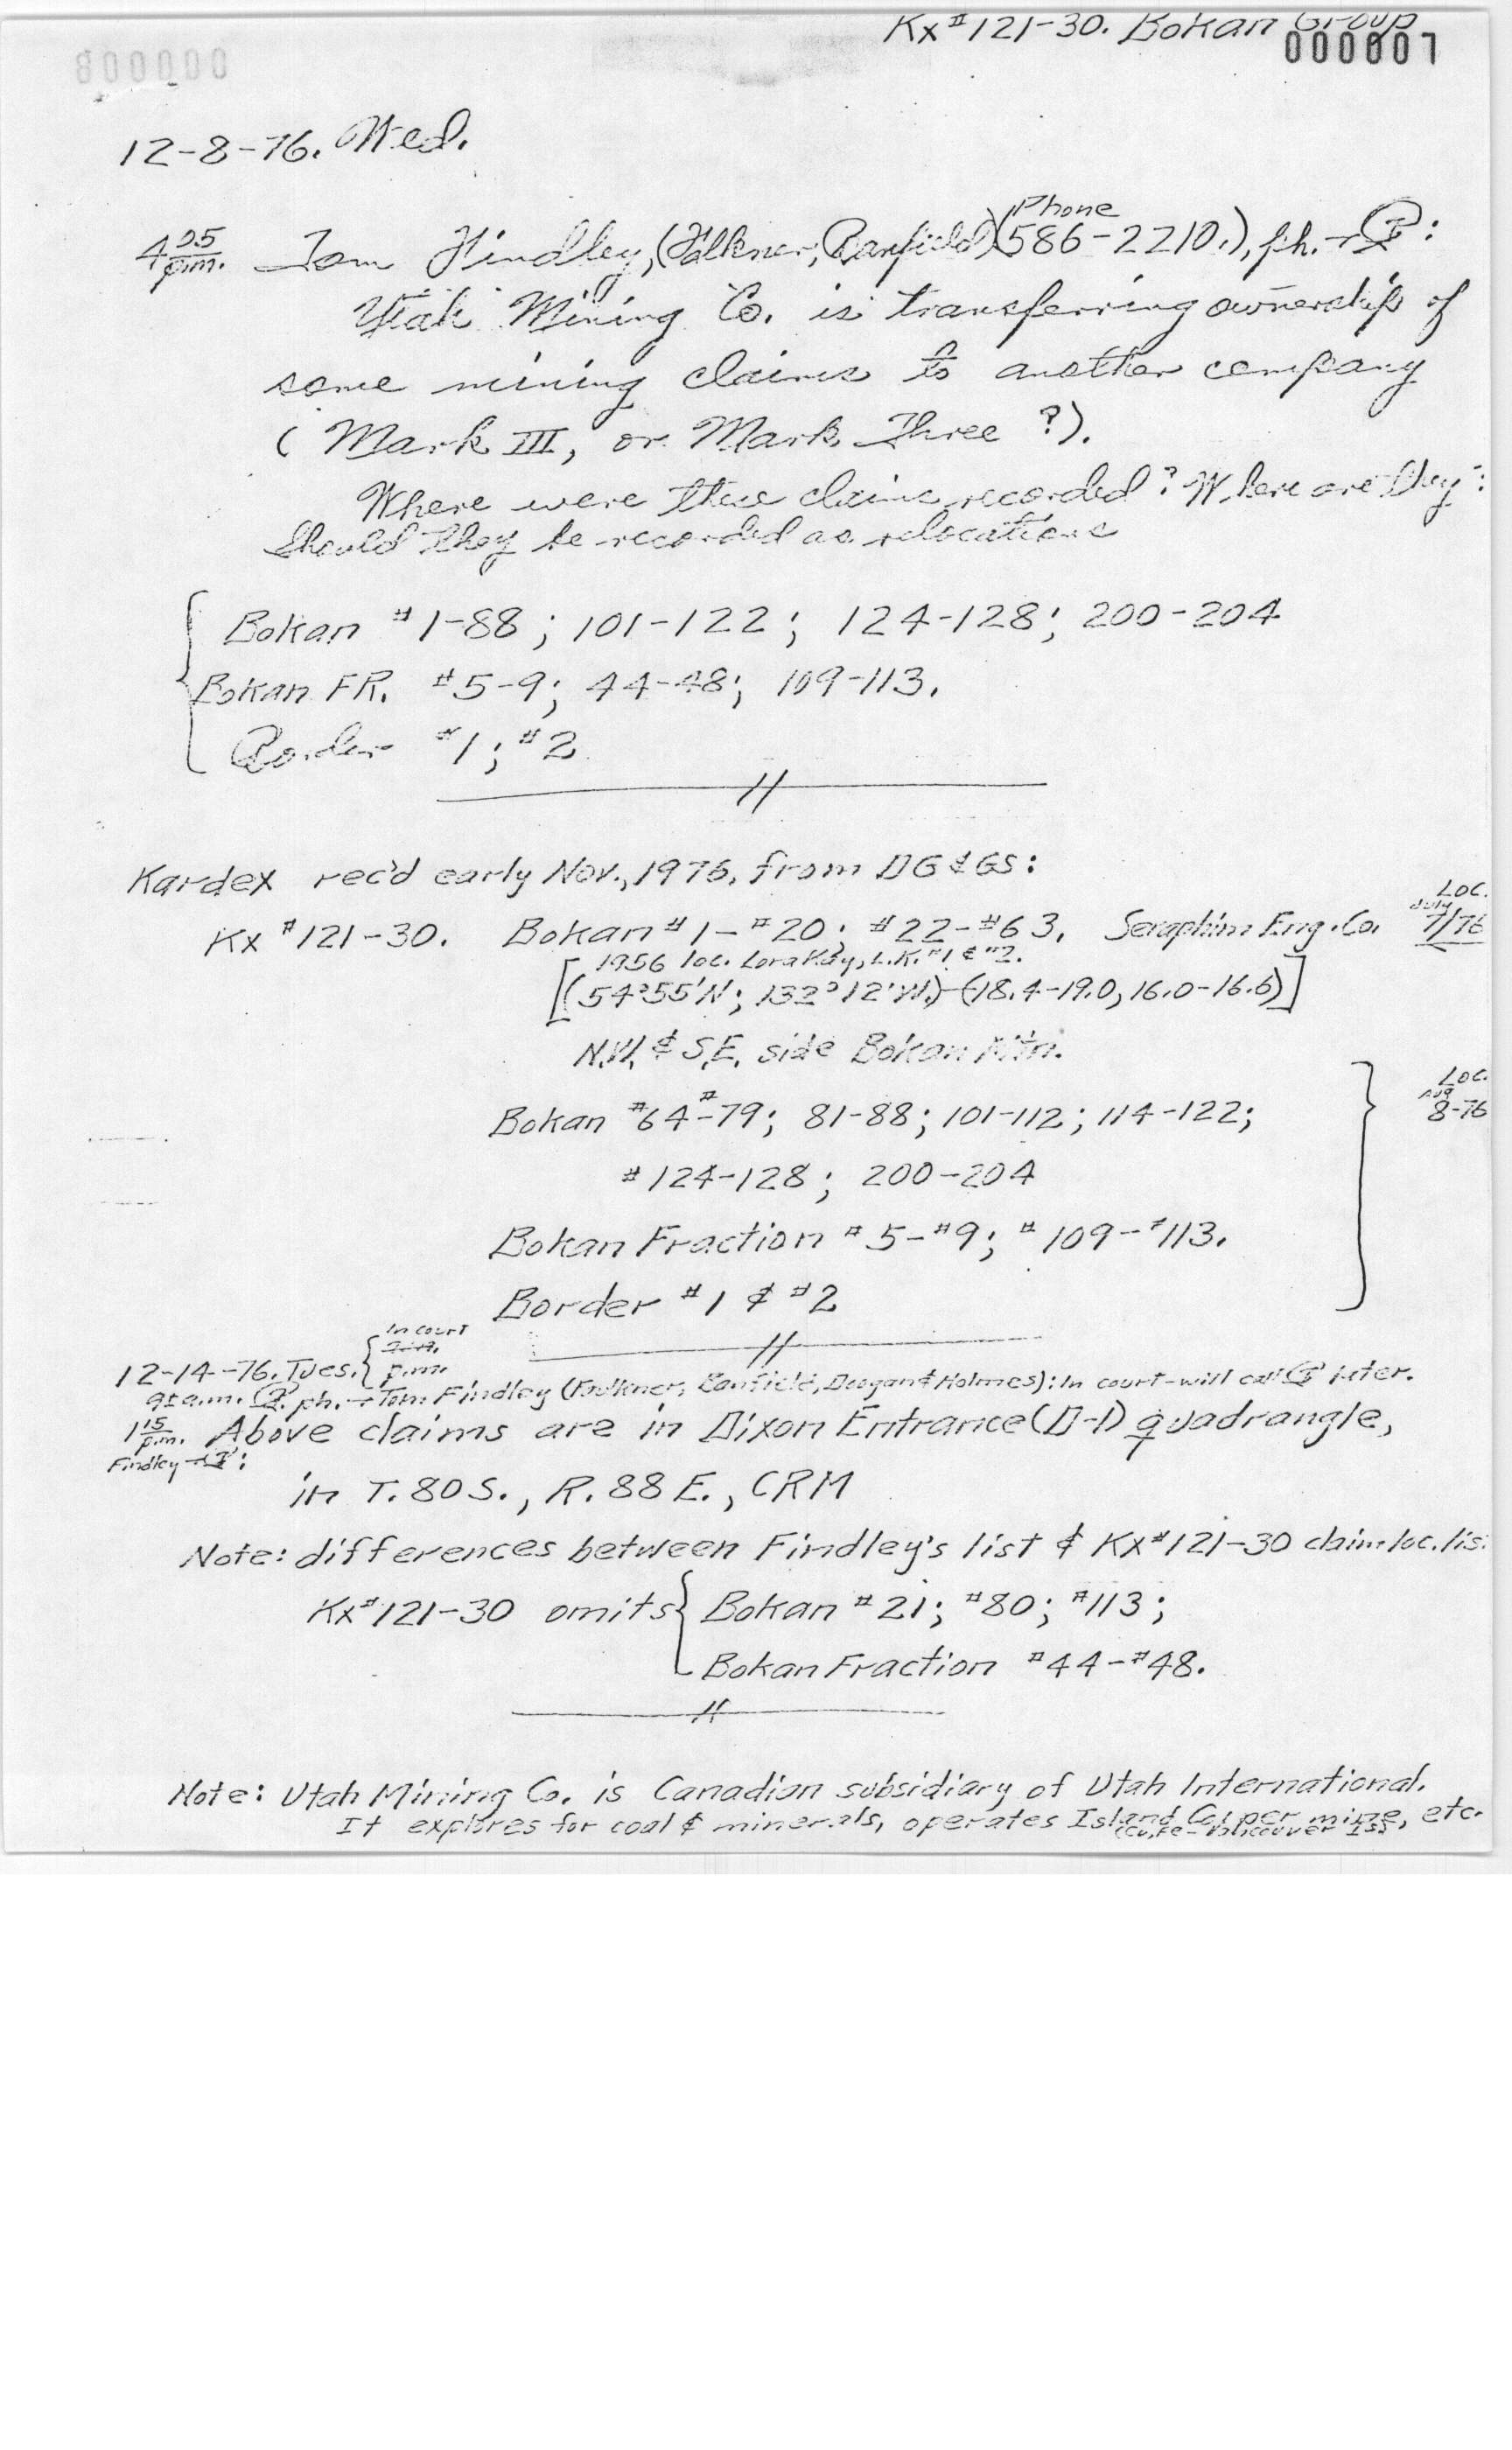 Kx #121-30. Bokan Group
000007
800000
12-8-76. Wed.
4 05 p.m. Tom Findley, (Falkner, Banfield) (Phone 586-2210.), ph. → P:
Utah Mining Co. is transferring ownership of
some mining claims to another company
(Mark III, or Mark Three ?).
Where were these claims recorded? Where are they?
Should they be recorded as relocations
Bokan #1-88; 101-122; 124-128; 200-204
Bokan FR. #5-9; 44-48; 109-113.
Border #1; #2
Kardex rec'd early Nov., 1976, from DG & GS:
Kx #121-30. Bokan #1-#20; #22-#63, Seraphim Eng. Co. Loc. July 7/76
1956 loc. Lora Kay, L.K. #1 & #2.
[(54°55'N; 132°12'W.)-(18.4-19.0, 16.0-16.6)]
N.W. & S.E. side Bokan Mtn.
Bokan #64-#79; 81-88; 101-112; 114-122; Loc. Aug 8-76
#124-128; 200-204
Bokan Fraction #5-#9; #109-#113.
Border #1 & #2
12-14-76. Tues. { In court p.m.
9 a.m. P. ph. → Tom Findley (Faulkner, Banfield, Doogan & Holmes): In court-will call P later.
1 15 p.m. Above claims are in Dixon Entrance (D-1) quadrangle,
Findley → P:
in T. 80 S., R. 88 E., CRM
Note: differences between Findley's list & Kx #121-30 claim loc. lis
Kx #121-30 omits { Bokan #21; #80; #113;
Bokan Fraction #44-#48.
Note: Utah Mining Co. is Canadian subsidiary of Utah International.
It explores for coal & minerals, operates Island Copper mine, etc.
(Cu, Fe - Vancouver Is)